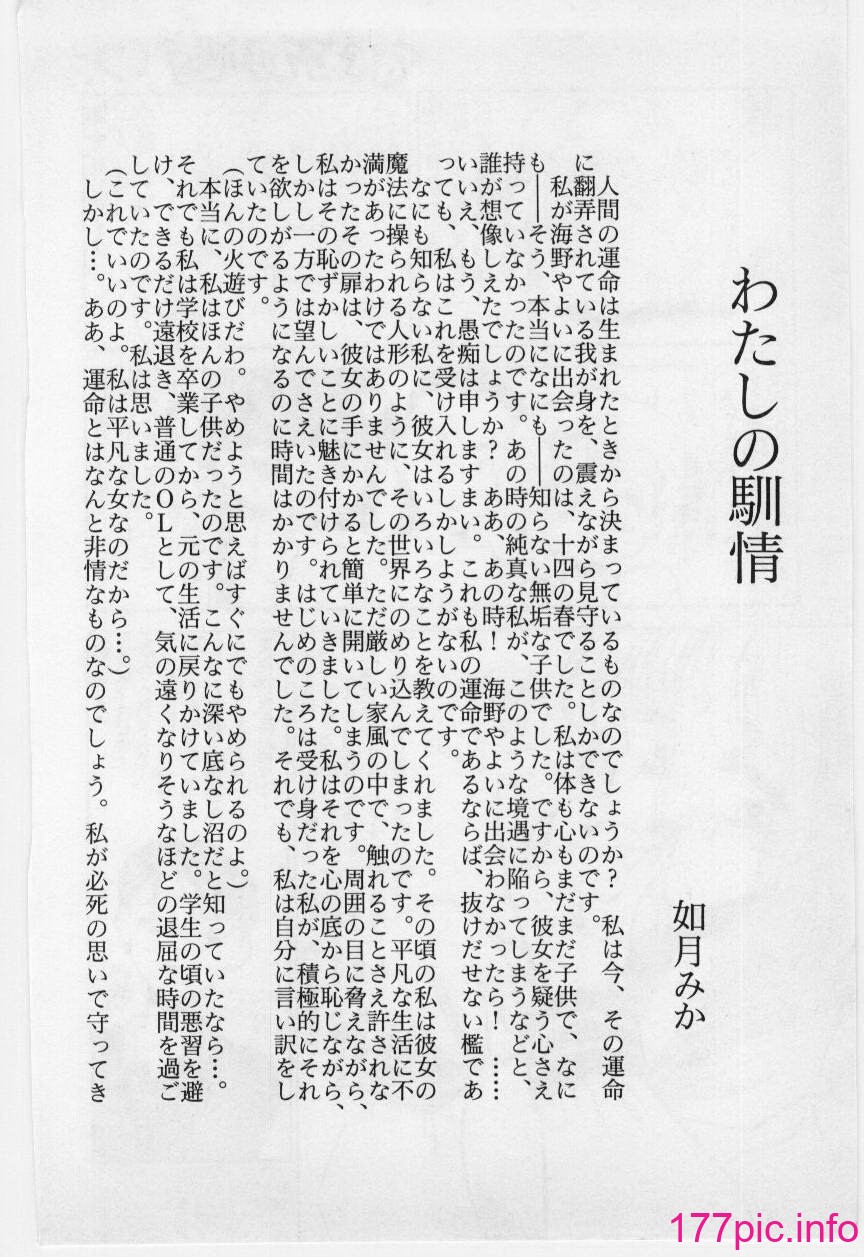 わたしの馴情
如月みか
人間の運命は生まれたときから決まっているものなのでしょうか? 私は今、その運命
に翻弄されている我が身を、震えながら見守ることしかできないのです。
私が海野やよいに出会ったのは、十四の春でした。私は体も心もまだまだ子供で、なに
も――そう、本当になにも――知らない無垢な子供でした。ですから、彼女を疑う心さえ
持っていなかったのです。あの時の純真な私が、このような境遇に陥ってしまうなどと、
誰が想像しえたでしょうか? ああ、あの時! 海野やよいに出会わなかったら! ……
いいえ、もう、愚痴は申しますまい。これも私の運命であるならば、抜けだせない檻であ
っても、私はこれを受け入れるしかしようがないのです。
なにも知らない私に、彼女はいろいろなことを教えてくれました。その頃の私は彼女の
魔法に操られる人形のように、その世界にのめり込んでしまったのです。平凡な生活に不
満があったわけではありませんでした。ただ厳しい家風の中で、触れることさえ許されな
かったその扉は、彼女の手にかかると簡単に開いてしまうのです。周囲の目に脅えながら、
私はその恥ずかしいことに魅き付けられていきました。私はそれを心の底から恥じながら、
しかし一方では望んでさえいたのです。はじめのころは受け身だった私が、積極的にそれ
を欲しがるようになるのに時間はかかりませんでした。それでも、私は自分に言い訳をし
ていたのです。
(ほんの火遊びだわ。やめようと思えばすぐにでもやめられるのよ。)
本当に、私はほんの子供だったのです。こんなに深い底なし沼だと知っていたなら…。
それでも私は学校を卒業してから、元の生活に戻りかけていました。学生の頃の悪習を避
け、できるだけ遠退き、普通のOLとして、気の遠くなりそうなほどの退屈な時間を過ご
していたのです。私は思いました。
(これでいいのよ。私は平凡な女なのだから…。)
しかし…。ああ、運命とはなんと非情なものなのでしょう。私が必死の思いで守ってき
177pic.info